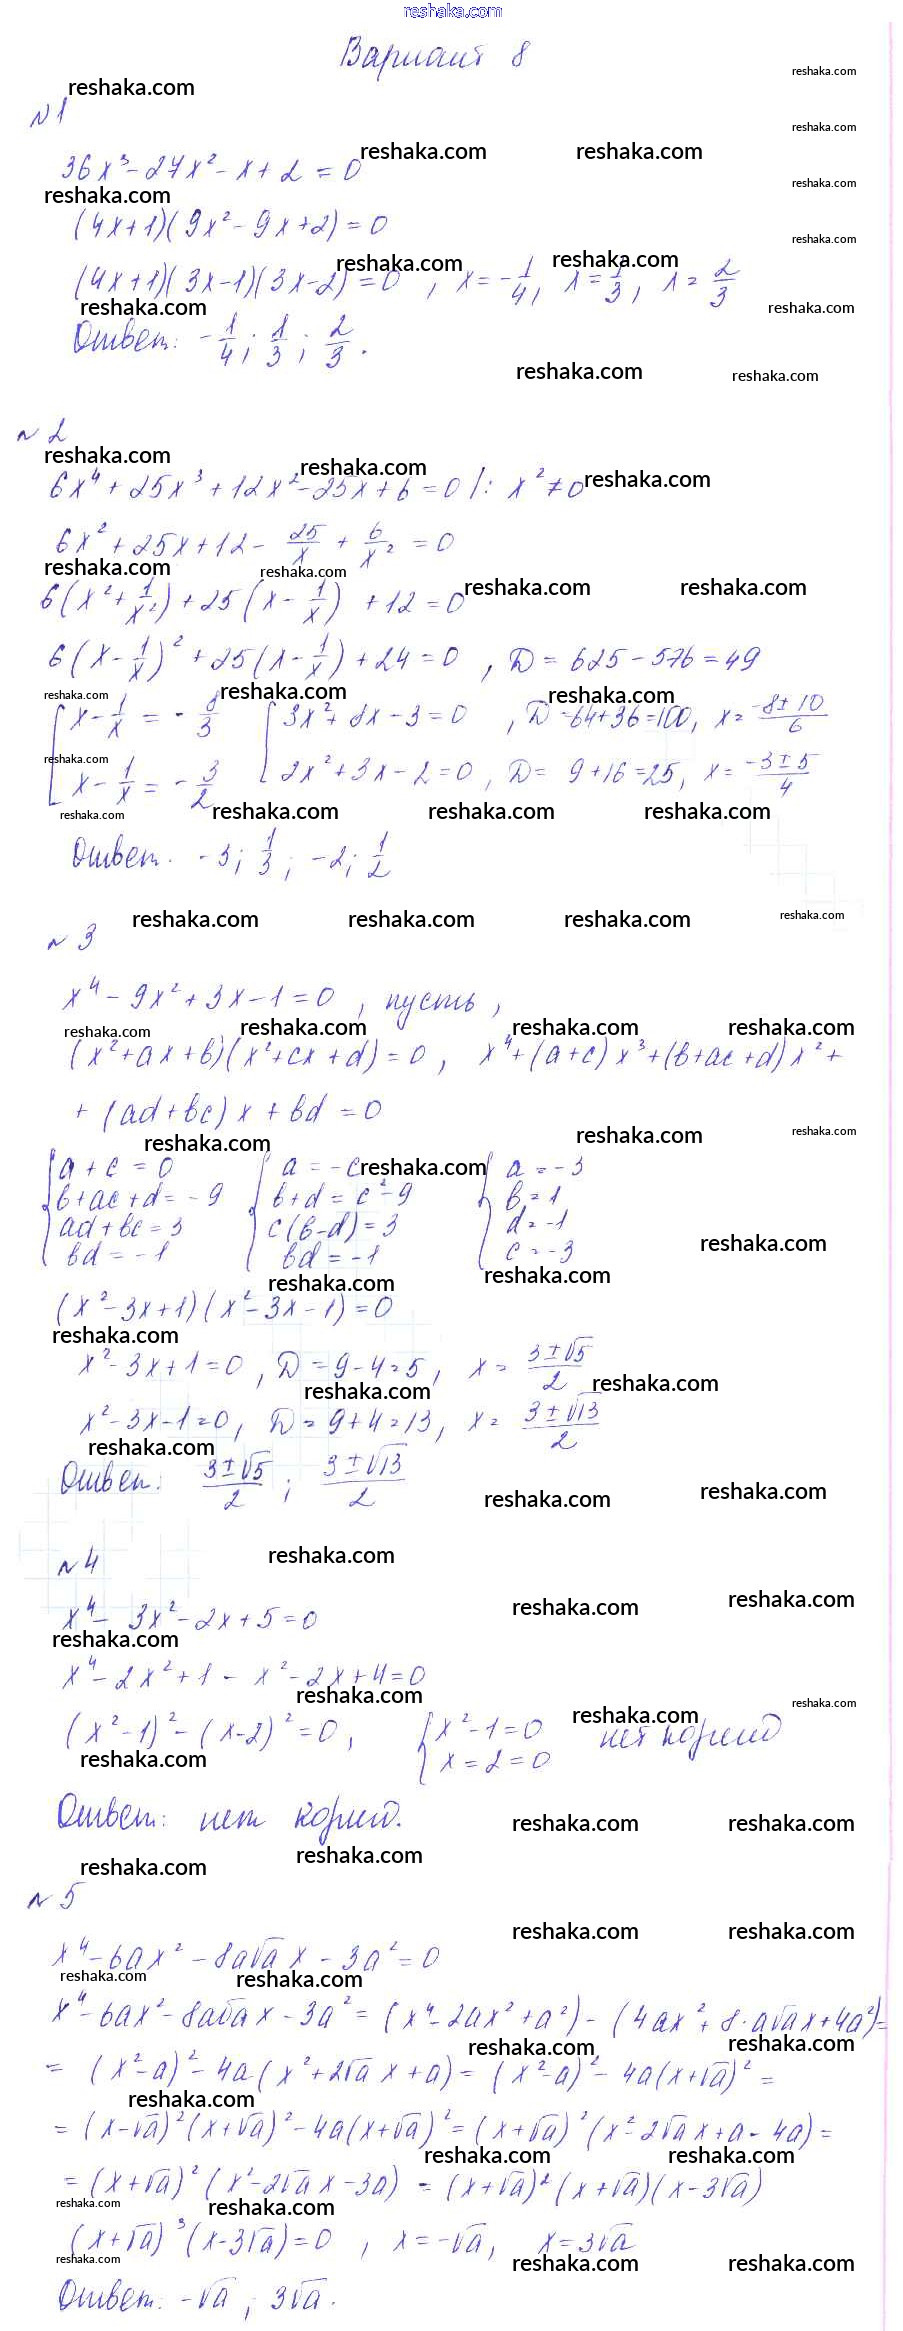 reshaka.com
Вариант 8
№1
36x³ - 27x² - x + 2 = 0
(4x+1)(9x² - 9x + 2) = 0
(4x+1)(3x-1)(3x-2) = 0, x = -1/4, x = 1/3, x = 2/3
Ответ: -1/4; 1/3; 2/3.
№2
6x⁴ + 25x³ + 12x² - 25x + 6 = 0 |: x² ≠ 0
6x² + 25x + 12 - 25/x + 6/x² = 0
6(x² + 1/x²) + 25(x - 1/x) + 12 = 0
6(x - 1/x)² + 25(x - 1/x) + 24 = 0, D = 625 - 576 = 49
[x - 1/x = -8/3 [3x² + 8x - 3 = 0, D = 64 + 36 = 100, x = (-8 ± 10)/6
x - 1/x = -3/2 2x² + 3x - 2 = 0, D = 9 + 16 = 25, x = (-3 ± 5)/4
Ответ. -3; 1/3; -2; 1/2
№3
x⁴ - 9x² + 3x - 1 = 0, пусть,
(x² + ax + b)(x² + cx + d) = 0, x⁴ + (a+c)x³ + (b+ac+d)x² +
+ (ad+bc)x + bd = 0
{a + c = 0 {a = -c {a = -3
b + ac + d = -9 b + d = c² - 9 b = 1
ad + bc = 3 c(b-d) = 3 d = -1
bd = -1 bd = -1 c = -3
(x² - 3x + 1)(x² - 3x - 1) = 0
x² - 3x + 1 = 0, D = 9 - 4 = 5, x = (3 ± √5)/2
x² - 3x - 1 = 0, D = 9 + 4 = 13, x = (3 ± √13)/2
Ответ: (3 ± √5)/2; (3 ± √13)/2
№4
x⁴ - 3x² - 2x + 5 = 0
x⁴ - 2x² + 1 - x² - 2x + 4 = 0
(x² - 1)² - (x - 2)² = 0, {x² - 1 = 0 нет корней
x = 2 = 0
Ответ: нет корней.
№5
x⁴ - 6ax² - 8a√a x - 3a² = 0
x⁴ - 6ax² - 8a√a x - 3a² = (x⁴ - 2ax² + a²) - (4ax² + 8·a√a x + 4a²) =
= (x² - a)² - 4a(x² + 2√a x + a) = (x² - a)² - 4a(x + √a)² =
= (x - √a)²(x + √a)² - 4a(x + √a)² = (x + √a)²(x² - 2√a x + a - 4a) =
= (x + √a)²(x² - 2√a x - 3a) = (x + √a)²(x + √a)(x - 3√a)
(x + √a)³(x - 3√a) = 0, x = -√a, x = 3√a
Ответ: -√a, 3√a.